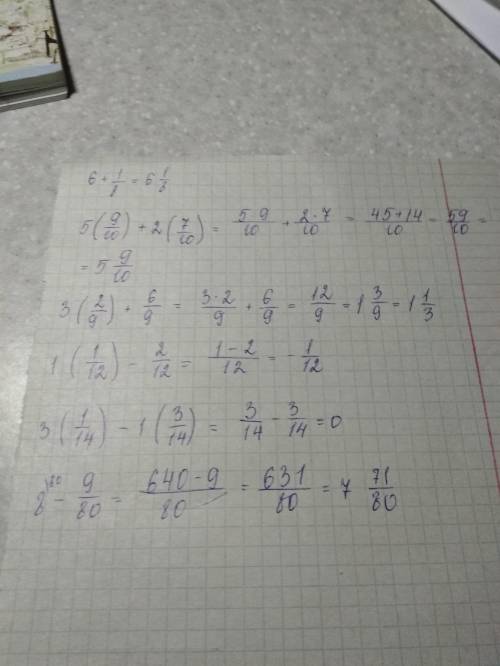 6 + 1/8 = 6 1/8
5(9/10) + 2(7/10) = 5·9/10 + 2·7/10 = 45+14/10 = 59/10 =
= 5 9/10
3(2/9) + 6/9 = 3·2/9 + 6/9 = 12/9 = 1 3/9 = 1 1/3
1(1/12) - 2/12 = 1-2/12 = -1/12
3(1/14) - 1(3/14) = 3/14 - 3/14 = 0
8^80 - 9/80 = 640-9/80 = 631/80 = 7 71/80